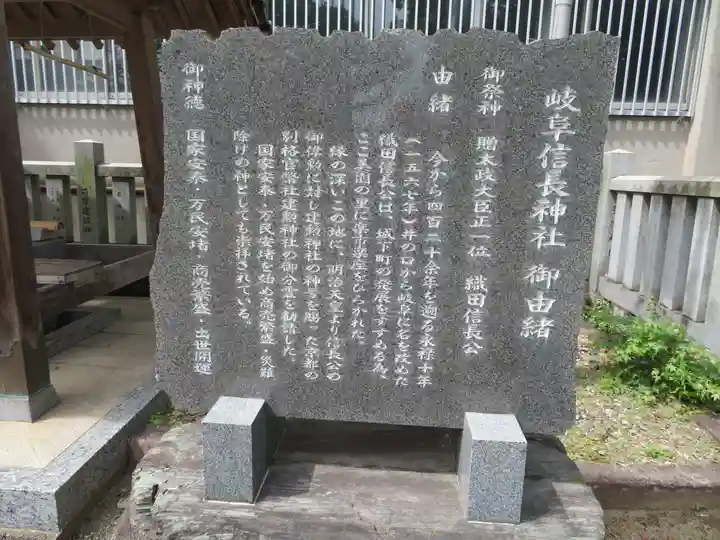 岐阜信長神社 御由緒
御祭神 贈太政大臣正一位 織田信長公
由緒 今から四百二十余年を遡る永禄十年
(一五六七年)井の口から岐阜に名を改めた
織田信長公は、城下町の発展をすすめる為、
ここ美園の里に楽市楽座をひらかれた。
縁の深いこの地に、明治天皇より信長公の
御偉勲に対し建勲神社の神号を賜った京都の
別格官幣社建勲神社の御分霊を勧請した。
国家安泰・万民安堵を始め商売繁盛・災難
除けの神としても崇拝されている。
御神徳 国家安泰・万民安堵・商売繁盛・出世開運